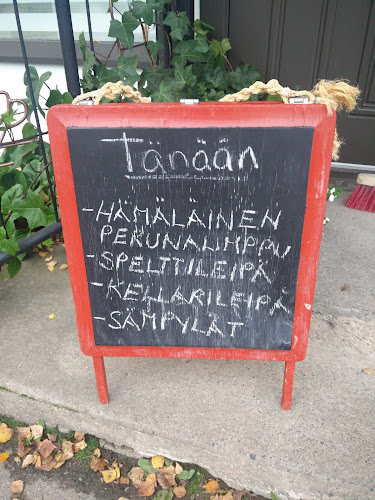 Tänään
-HÄMÄLÄINEN
PERUNALIMPPU
-SPELTTILEIPÄ
-KELLARILEIPÄ
-SÄMPYLÄT